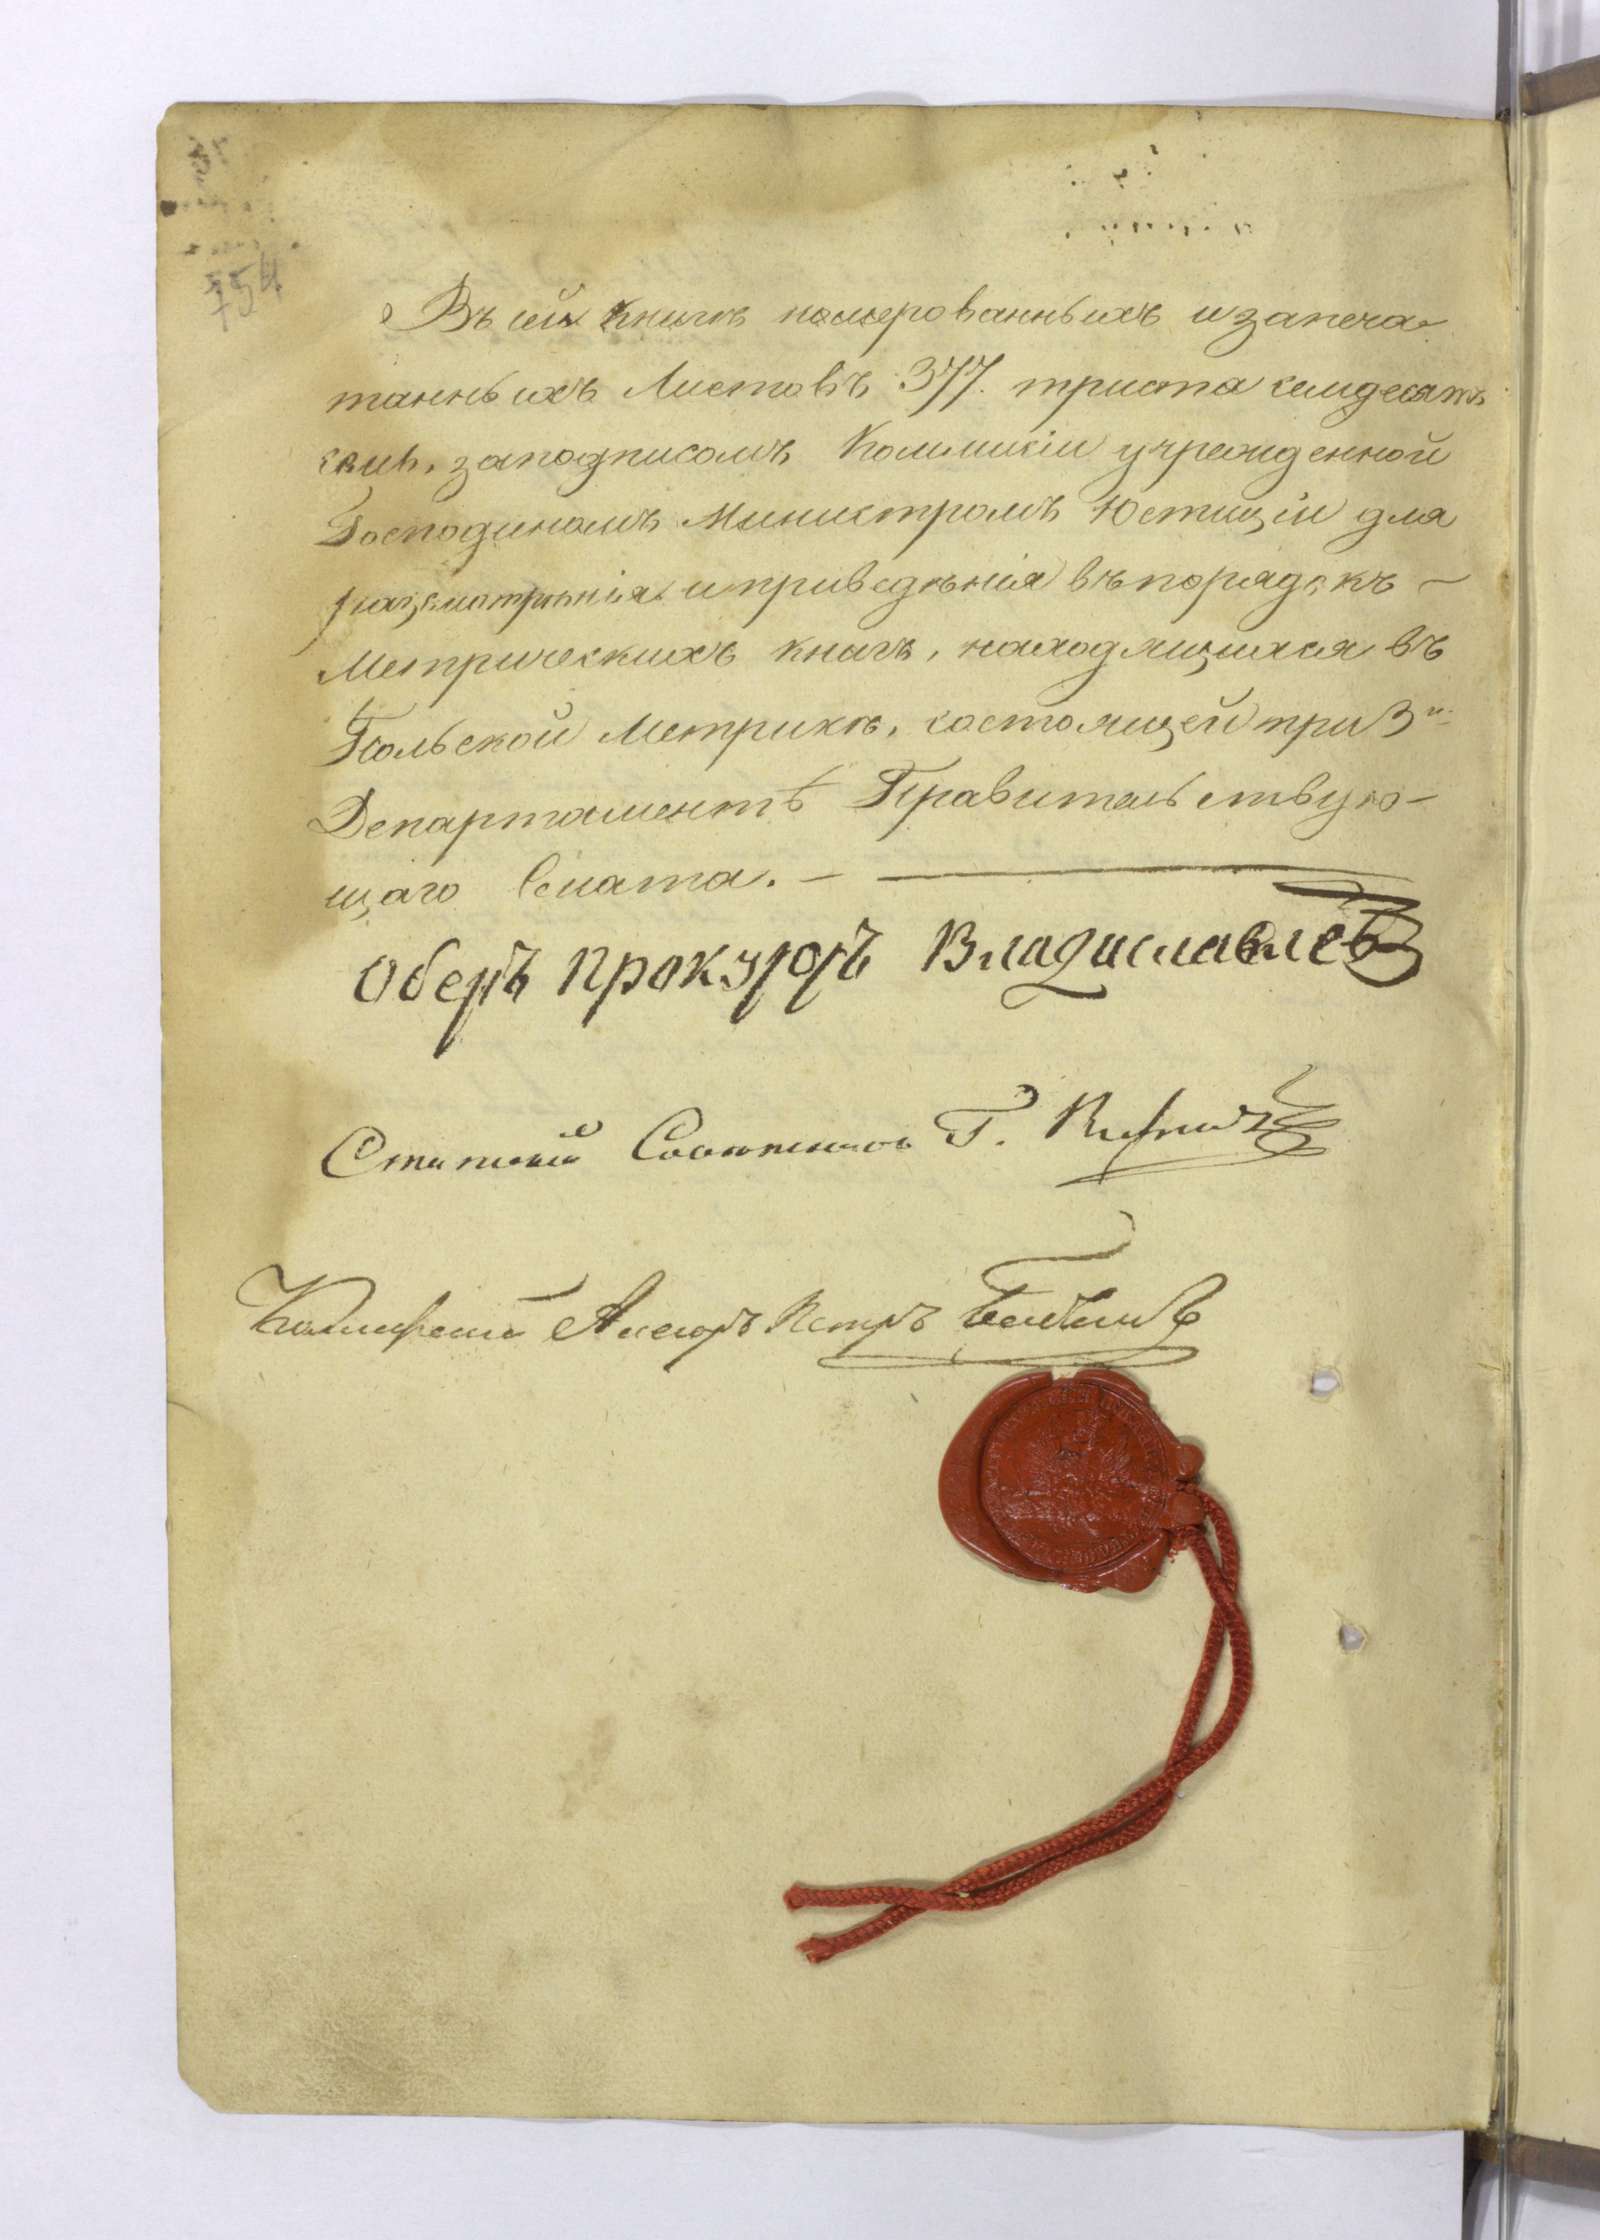 754
Въ сей книгѣ номерованныхъ и запеча
танныхъ Листовъ 377. триста семдесятъ
семь, заподписомъ Коммисіи учрежденной
Господиномъ Министромъ Юстиціи для
разсмотрѣнія и приведѣнія въ порядокъ —
Метрическихъ книгъ, находящихся въ
Польской Метрикѣ, состоящей при 3мъ
Департаментѣ Правительствую-
щаго Сената. —
Оберъ Прокуроръ Владиславлевъ
Статскій Совѣтникъ Г.
Коллежскій Асесоръ Петръ